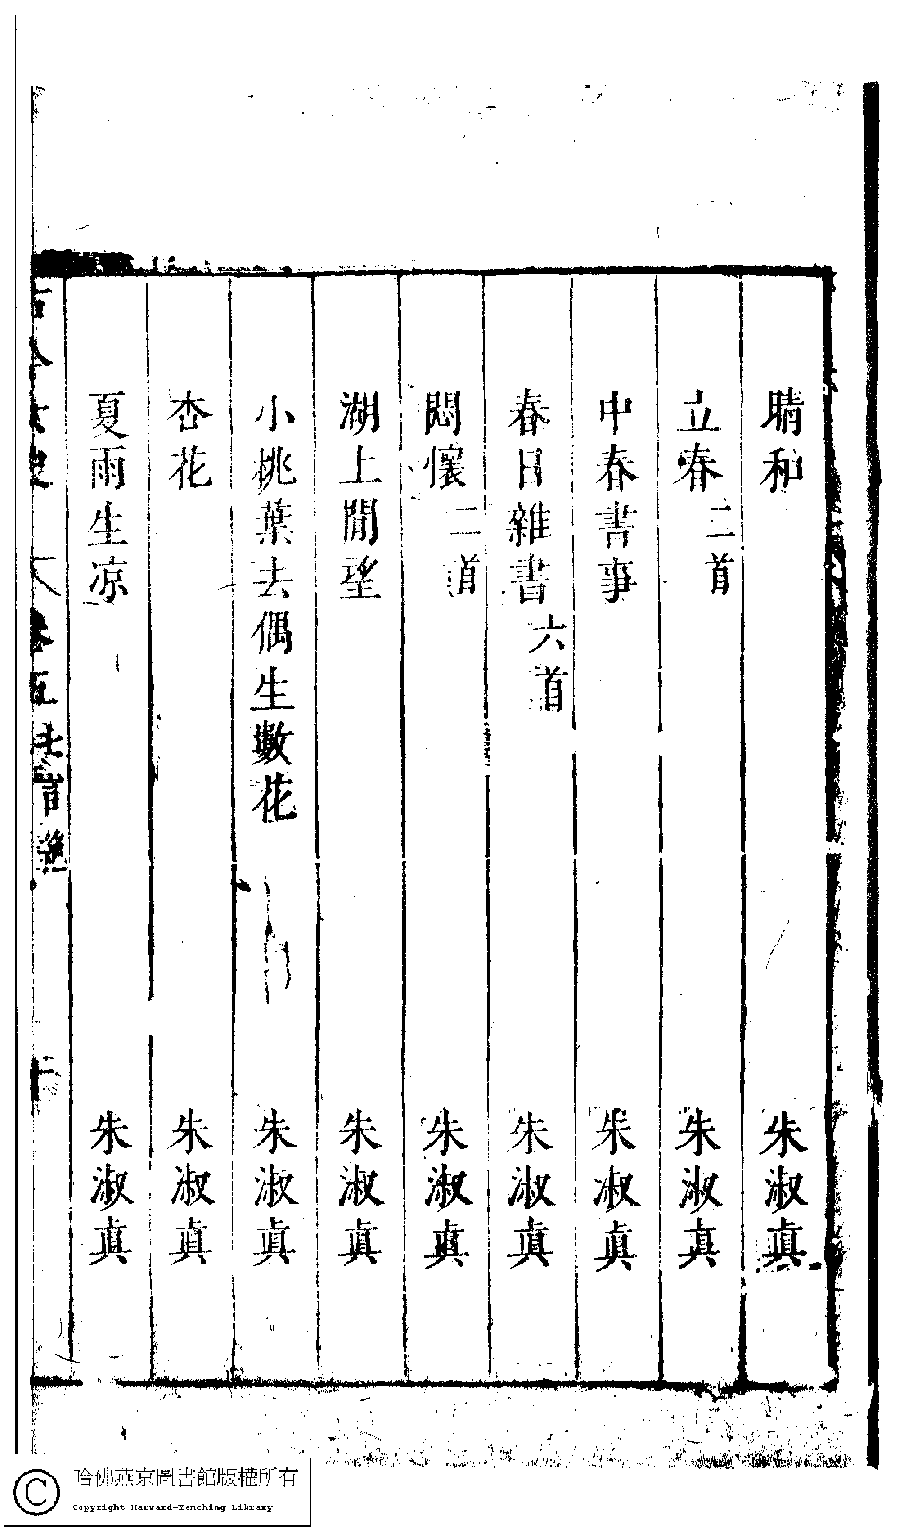 晴和 朱淑真
立春 二首 朱淑真
中春書事 朱淑真
春日雜書 六首 朱淑真
悶懷 二首 朱淑真
湖上閒望 朱淑真
小桃葉去偶生數花 朱淑真
杏花 朱淑真
夏雨生凉 朱淑真
卷五
哈佛燕京圖書館版權所有
Copyright Harvard-Yenching Library